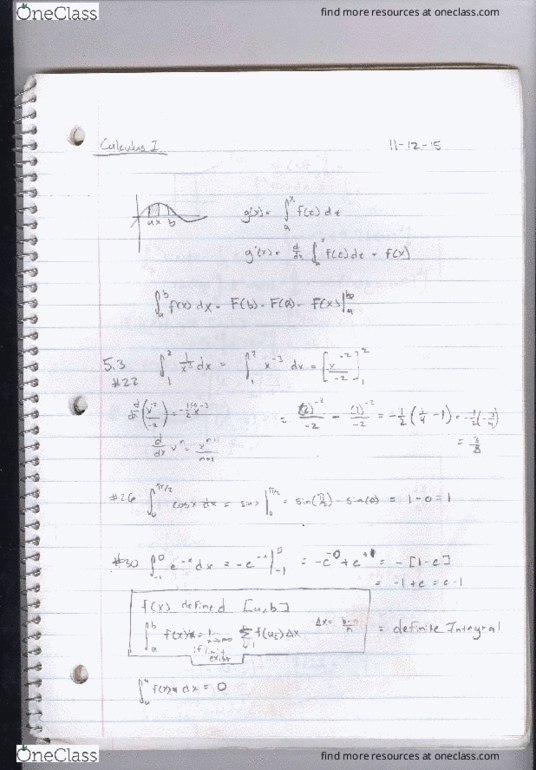 OneClass
find more resources at oneclass.com
Calculus I 11-12-15
a x b
g(x) = ∫_a^x f(t) dt
g'(x) = d/dx ∫_a^x f(t) dt = f(x)
∫_a^b f(x) dx = F(b) - F(a) = F(x)|_a^b
5.3
#22 ∫_1^2 1/x^3 dx = ∫_1^2 x^-3 dx = [x^-2/-2]_1^2
= (2)^-2/-2 - (1)^-2/-2 = -1/2(1/4 - 1) = -1/2(-3/4)
= 3/8
#26 ∫_0^π/2 cosx dx = sinx|_0^π/2 = sin(π/2) - sin(0) = 1 - 0 = 1
#30 ∫_-1^0 e^-x dx = -e^-x|_-1^0 = -e^-0 + e^+1 = -[1-e]
= -1+e = e-1
f(x) defined [a,b]
∫_a^b f(x) Σ f(u_i) Δx Δx = b-a/n = definite Integral
if limit
exist
∫_a^a f(x) dx = 0
OneClass
find more resources at oneclass.com